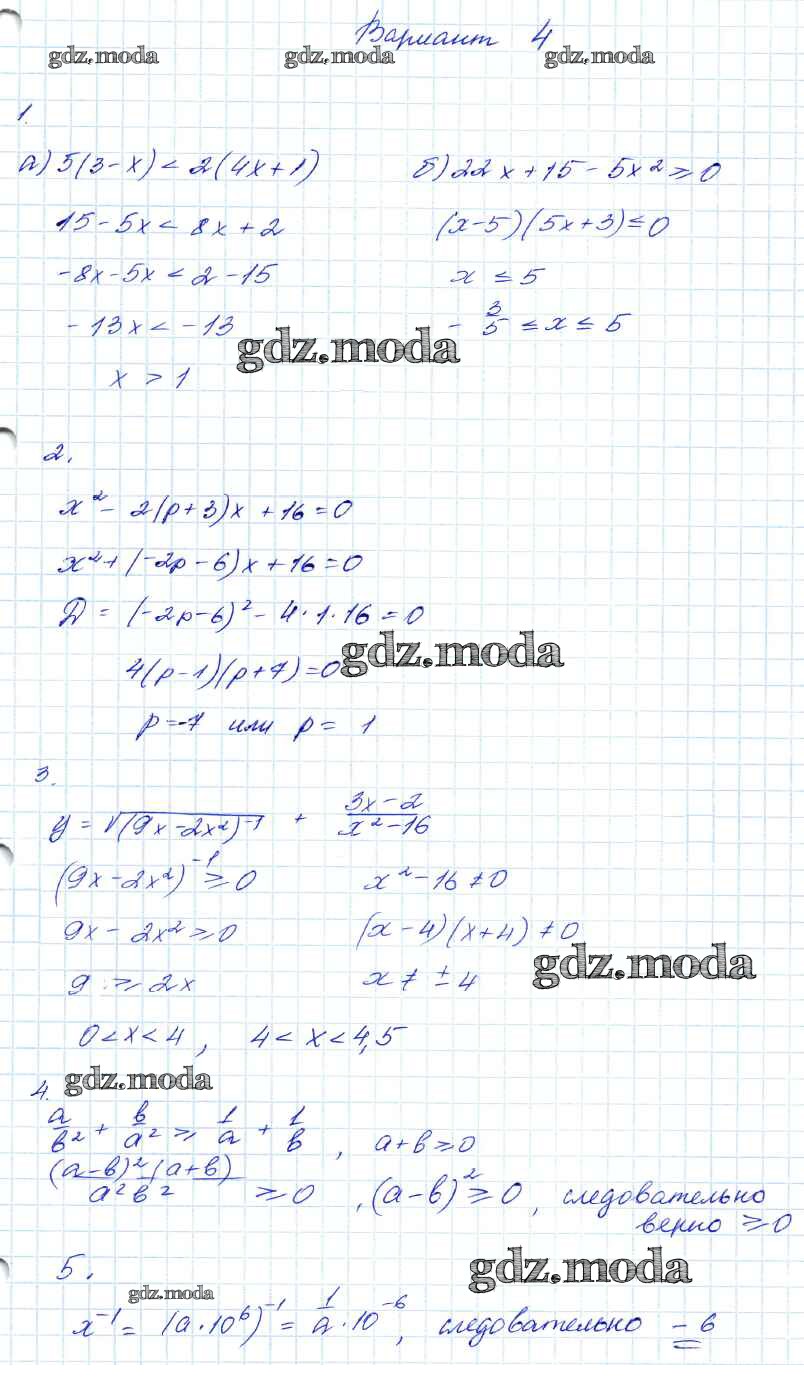 Вариант 4
gdz.moda gdz.moda gdz.moda
1.
а) 5(3-x) < 2(4x+1)
15 - 5x < 8x + 2
-8x-5x < 2 -15
- 13x < -13
x > 1
б) 22x + 15 - 5x² ≥ 0
(x-5)(5x+3) ≤ 0
x ≤ 5
- 3/5 ≤ x ≤ 5
gdz.moda
2.
x² - 2(p+3)x + 16 = 0
x² + (-2p - 6)x + 16 = 0
D = (-2p-6)² - 4·1·16 = 0
4(p-1)(p+7) = 0
gdz.moda
p = -7 или p = 1
3.
y = √(9x-2x²)⁻¹ + (3x-2)/(x²-16)
(9x-2x²)⁻¹ ≥ 0
9x - 2x² ≥ 0
9 ≥ 2x
x² - 16 ≠ 0
(x-4)(x+4) ≠ 0
x ≠ ± 4
gdz.moda
0 < x < 4, 4 < x < 4,5
4. gdz.moda
a/b² + b/a² ≥ 1/a + 1/b, a+b ≥ 0
(a-b)²(a+b)/a²b² ≥ 0, (a-b)² ≥ 0, следовательно
верно ≥ 0
5. gdz.moda
gdz.moda
x⁻¹ = (a·10⁶)⁻¹ = 1/a · 10⁻⁶, следовательно - 6